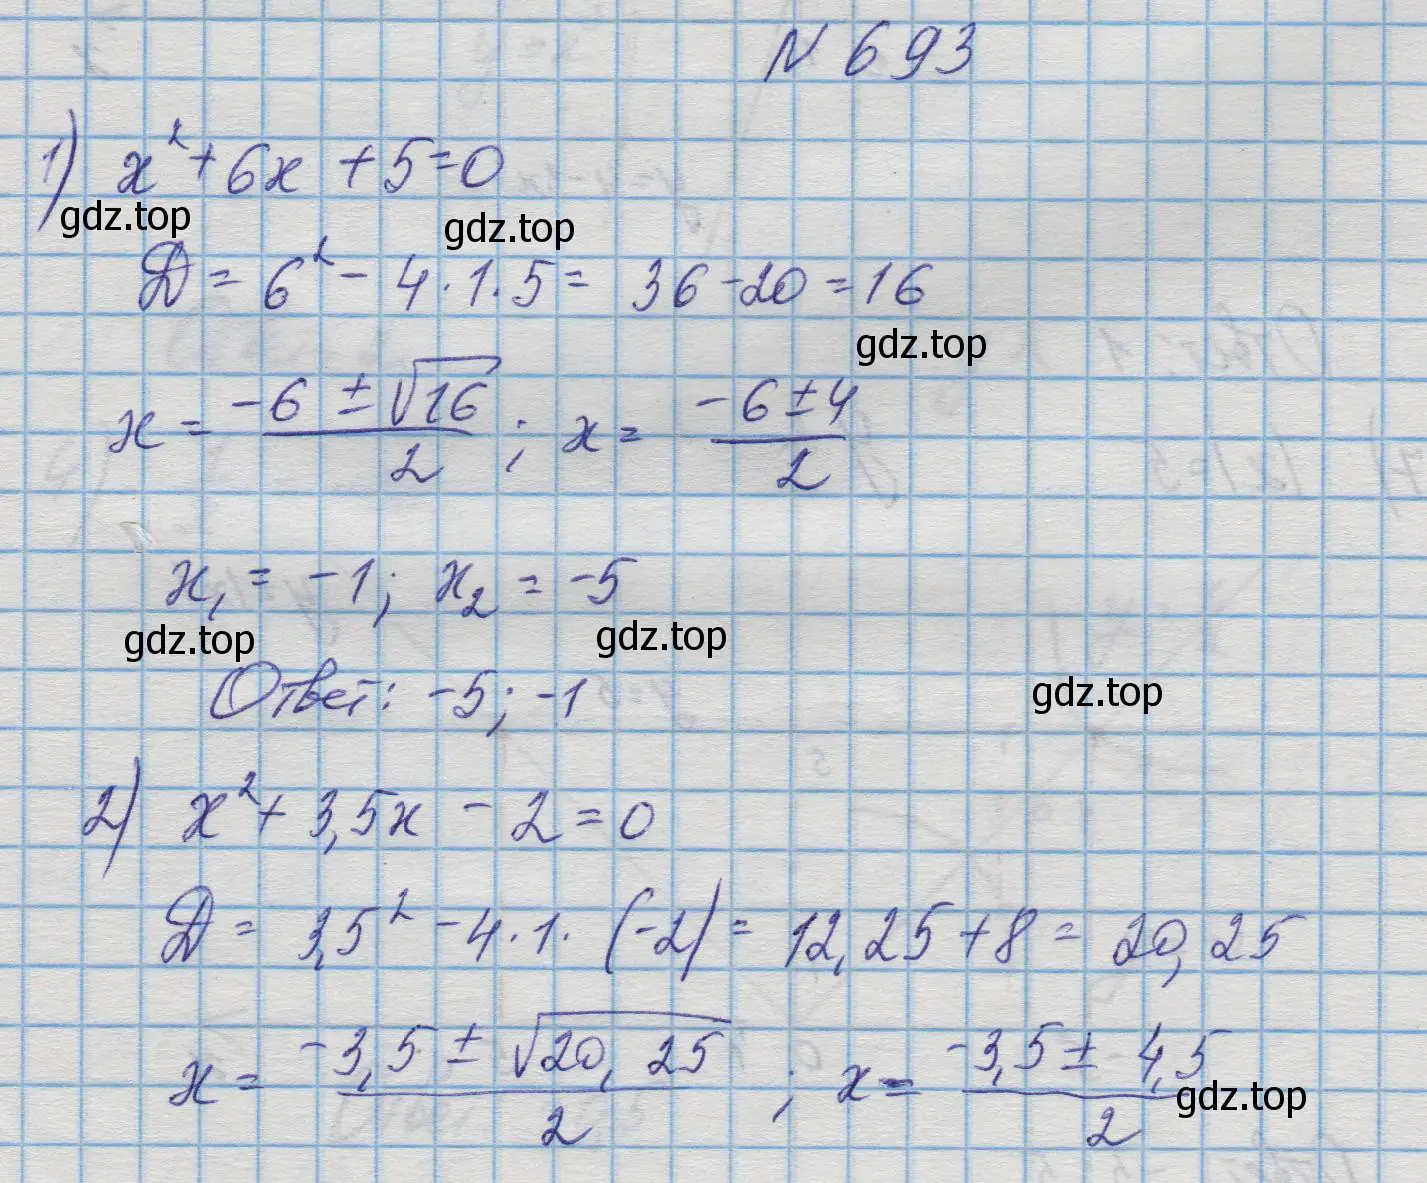 N 693
1) x² + 6x + 5 = 0
gdz.top gdz.top
D = 6² - 4 · 1 · 5 = 36 - 20 = 16
gdz.top
x = (-6 ± √16)/2 ; x = (-6 ± 4)/2
x₁ = -1; x₂ = -5
gdz.top gdz.top
Ответ: -5; -1
gdz.top
2) x² + 3,5x - 2 = 0
D = 3,5² - 4 · 1 · (-2) = 12,25 + 8 = 20,25
x = (-3,5 ± √20,25)/2 ; x = (-3,5 ± 4,5)/2
gdz.top